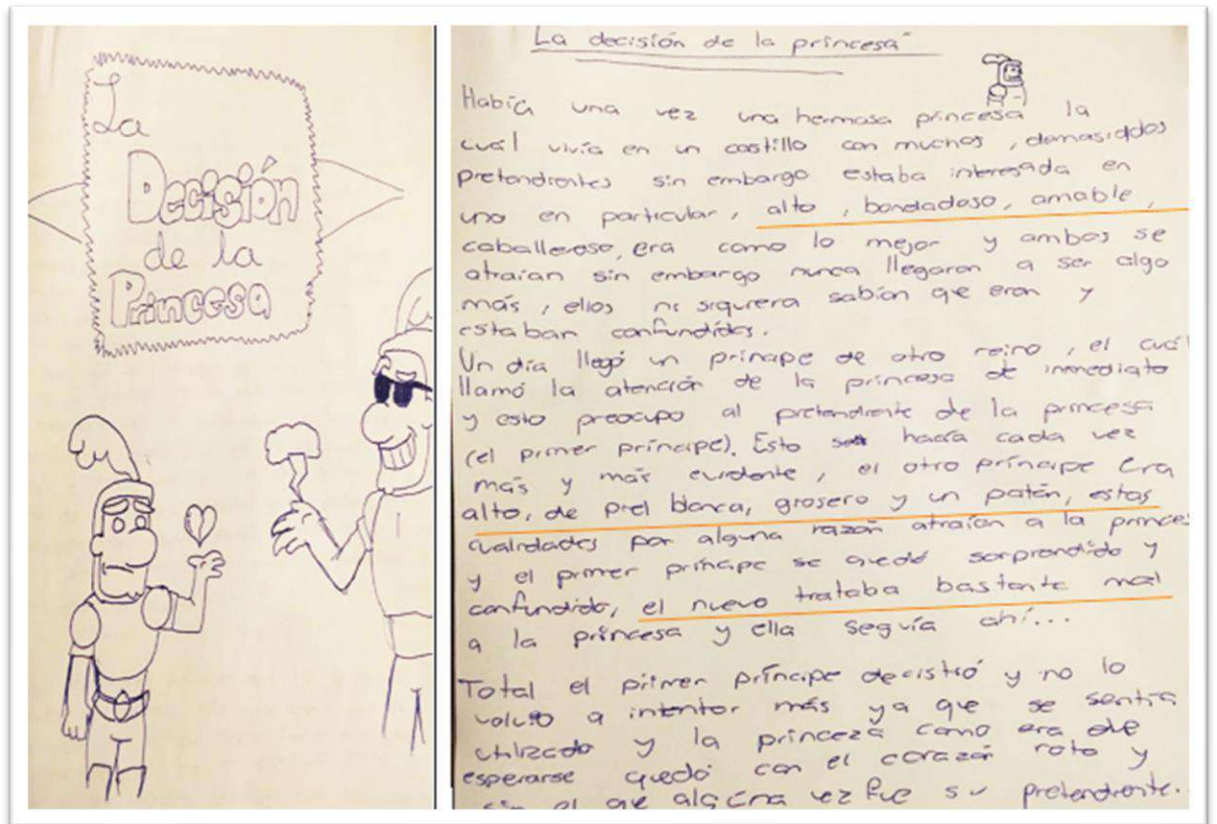 La
Decisión
de la
Princesa
La decisión de la princesa"
Había una vez una hermosa princesa la
cuál vivía en un castillo con muchos, demasiados
pretendientes sin embargo estaba interesada en
uno en particular, alto, bondadoso, amable,
caballeroso, era como lo mejor y ambos se
atraían sin embargo nunca llegaron a ser algo
más, ellos ni siquiera sabían que eran y
estaban confundidos.
Un día llegó un príncipe de otro reino, el cuál
llamó la atención de la princesa de inmediato
y esto preocupo al pretendiente de la princesa
(el primer príncipe). Esto hacía cada vez
más y más evidente, el otro príncipe era
alto, de piel blanca, grosero y un patán, estas
cualidades por alguna razón atraían a la princes
y el primer príncipe se quedó sorprendido y
confundido, el nuevo trataba bastante mal
a la princesa y ella seguía ahí...
Total el primer príncipe decistió y no lo
volvió a intentar más ya que se sentía
utilizado y la princeza como era de
esperarse quedó con el corazón roto y
sin el que alguna vez fue su pretendiente.